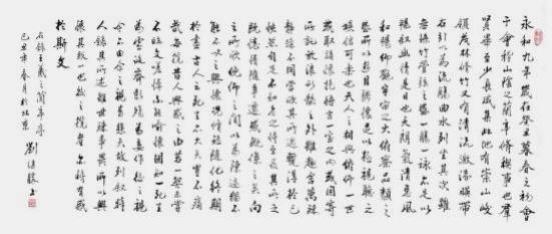 永和九年歲在癸丑暮春之初會
于會稽山陰之蘭亭修禊事也群
賢畢至少長咸集此地有崇山峻
領茂林修竹又有清流激湍映帶
左右引以為流觴曲水列坐其次雖
無絲竹管弦之盛一觴一詠亦足以
暢敘幽情是日也天朗氣清惠風
和暢仰觀宇宙之大俯察品類之
盛所以遊目騁懷足以極視聽之
娛信可樂也夫人之相與俯仰一世
或取諸懷抱悟言一室之內或因寄
所託放浪形骸之外雖趣舍萬殊
靜躁不同當其欣於所遇暫得於己
快然自足不知老之將至及其所之
既惓情隨事遷感慨係之矣向
之所欣俛仰之間以為陳迹猶不
能不以之興懷況修短隨化終期
於盡古人云死生亦大矣豈不痛
哉每攬昔人興感之由若合一契未嘗
不臨文嗟悼不能喻之於懷固知一死生
為虛誕齊彭殤為妄作後之視
今亦由今之視昔悲夫故列敘時
人錄其所述雖世殊事異所以興
懷其致一也後之攬者亦將有感
於斯文
右錄王羲之蘭亭序
己丑年春月於北京
劉
書